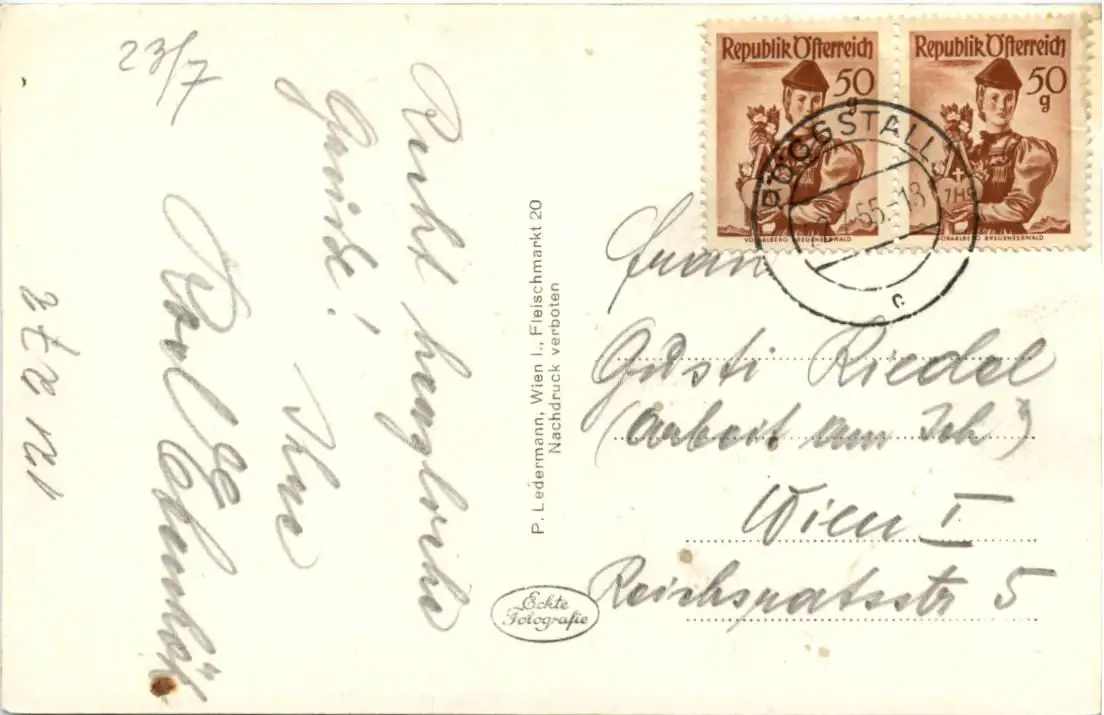 23/7
Recht herzliche
Grüße!
Ihre
P. Ledermann, Wien I., Fleischmarkt 20
Nachdruck verboten
Echte
Fotografie
Republik Österreich
50
g
VORARLBERG BREGENZERWALD
Republik Österreich
50
g
VORARLBERG BREGENZERWALD
PÖGGSTALL
Frau
Gusti Riedel
(Arbeit am Ich")
Wien I
Reichsratsstr 5